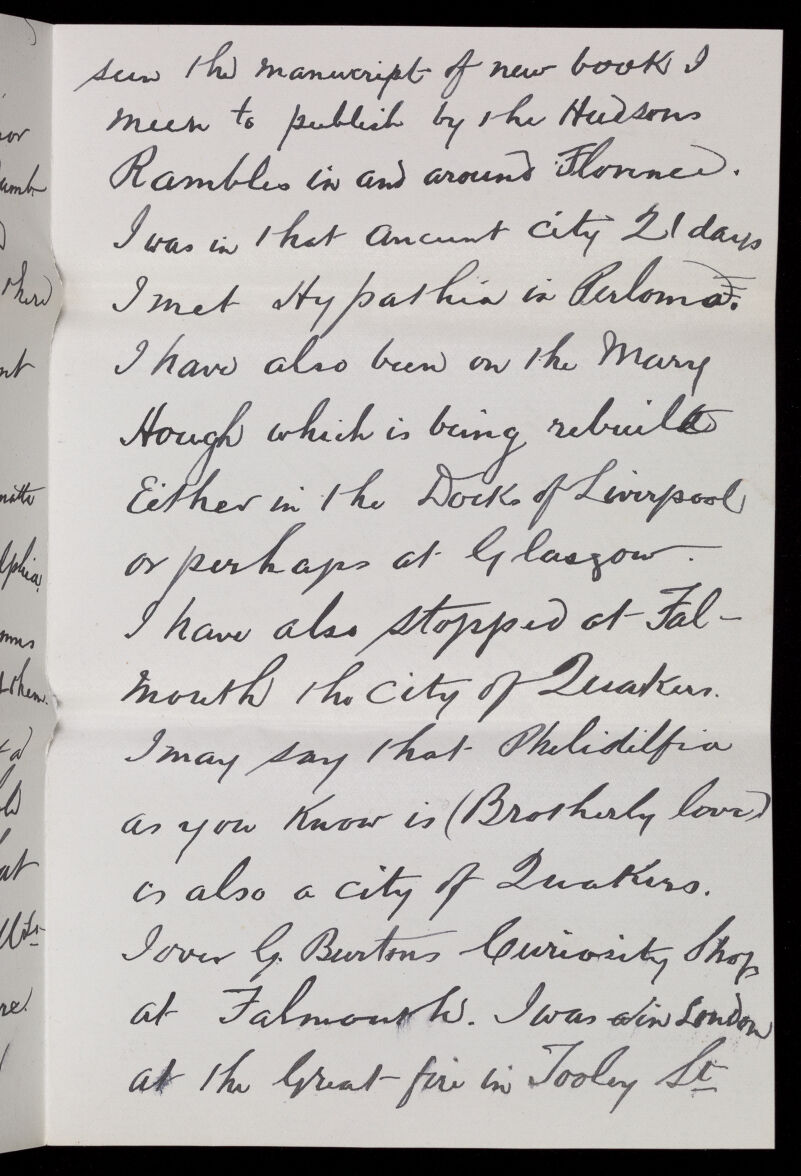 seen the manuscript of new book I
meen to publish by the Hudsons
Rambles in and around Florence.
I was in that ancient city 21 days
I met Hypathia in Perloma.
I have also been on the Mary
Hough which is being rebuilt
Either in the Docks of Liverpool
or perhaps at Glasgow.
I have also stopped at Fal-
mouth the City of Quakers.
I may say that Philidilfia
as you Know is (Brotherly love)
is also a city of Quakers.
I over G. Burtons Curiosity Shop
at Falmouth. I was in London
at the Great fire in Tooley St
or
amb
there
nt
matte
lphia
them.
at
re.